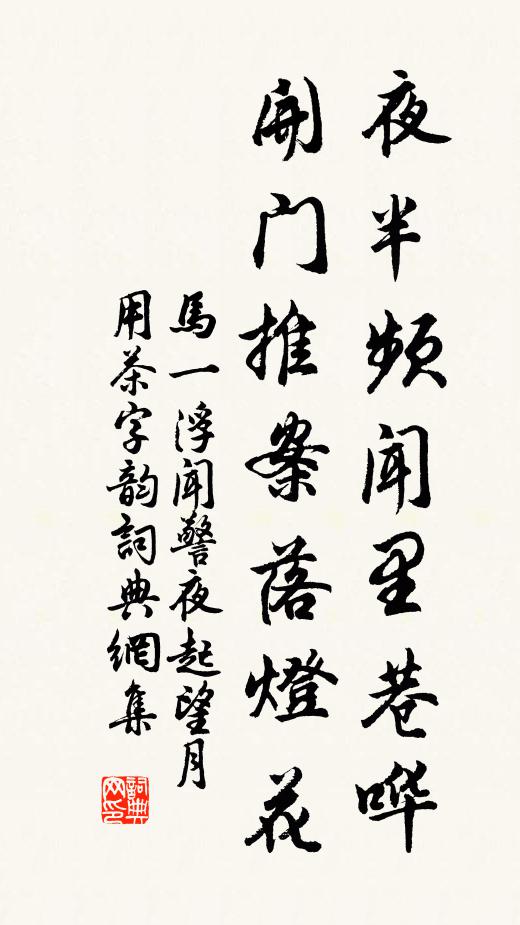 夜半頻闻里巷哗
開门推案落燈花
馬一浮闻警夜起望月
用茶字韵詞典網集
詞典
网印